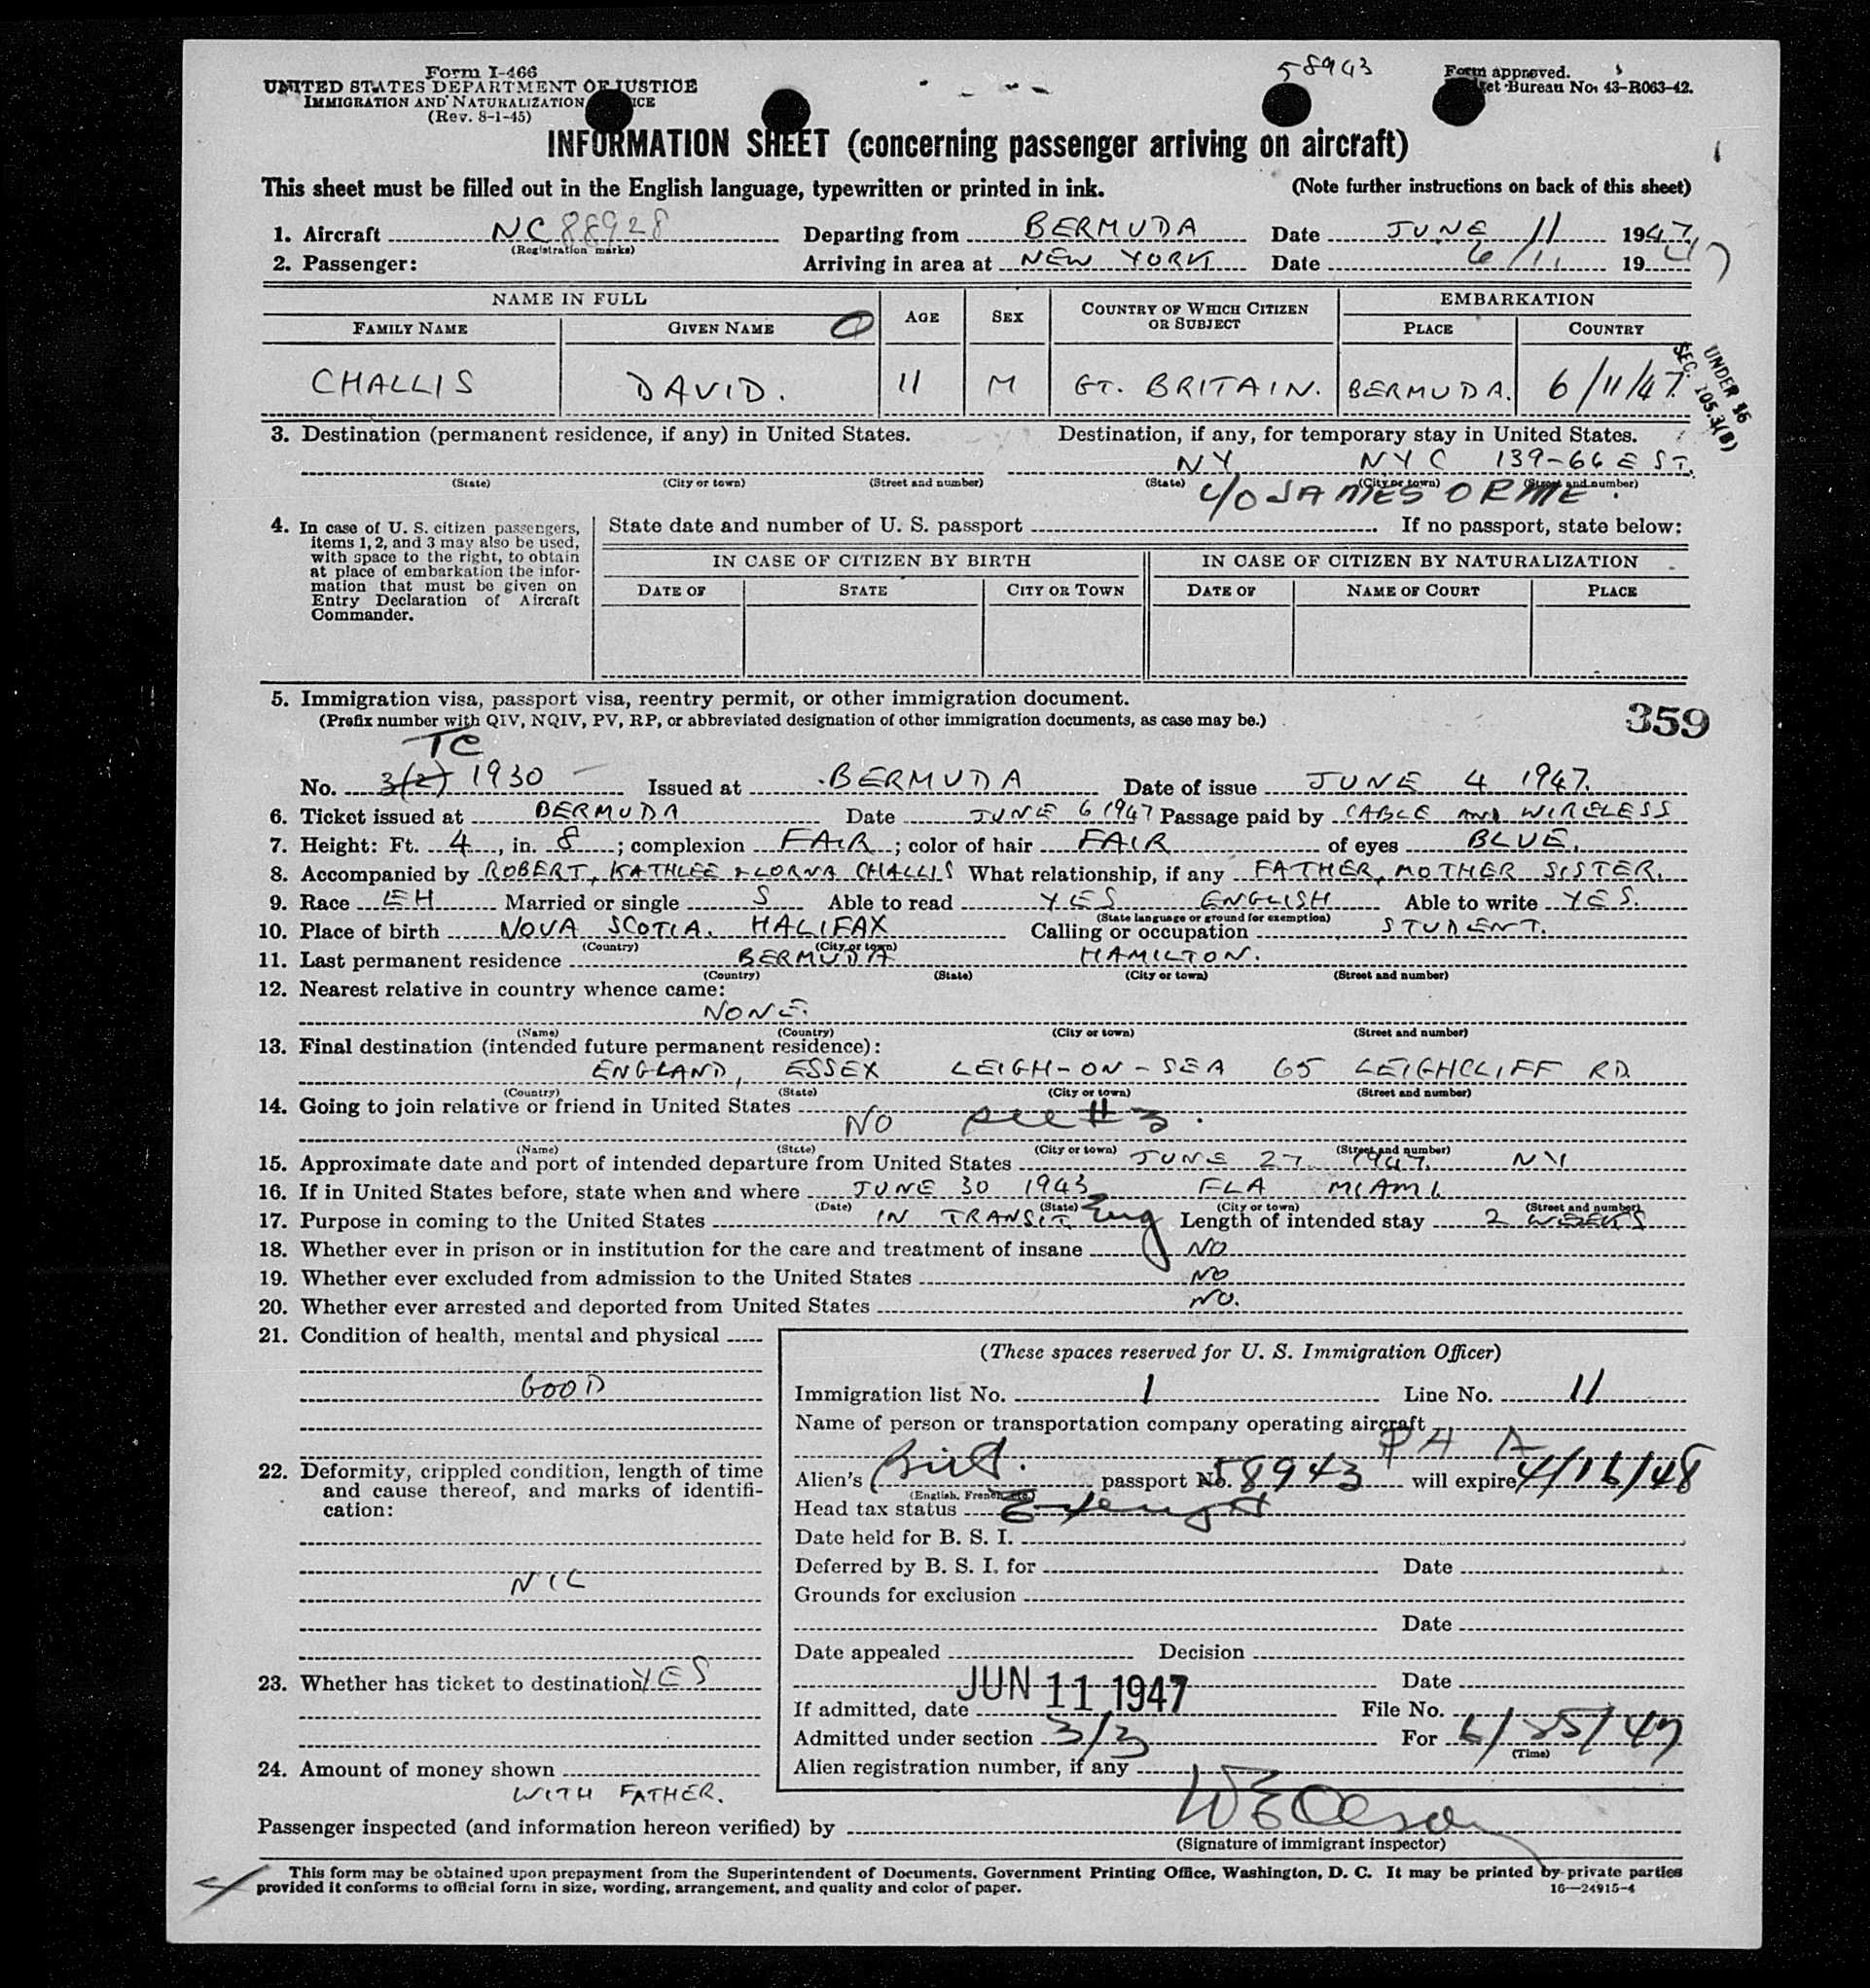 58943
Form I-466
UNITED STATES DEPARTMENT OF JUSTICE
IMMIGRATION AND NATURALIZATION
(Rev. 8-1-45)
Form approved.
Bureau No. 43-R063-42.
INFORMATION SHEET (concerning passenger arriving on aircraft)
This sheet must be filled out in the English language, typewritten or printed in ink. (Note further instructions on back of this sheet)
1. Aircraft NC 88928 Departing from BERMUDA Date JUNE 11 1947
(Registration marks)
2. Passenger: Arriving in area at NEW YORK Date 6/11 1947
NAME IN FULL AGE SEX COUNTRY OF WHICH CITIZEN OR SUBJECT EMBARKATION
FAMILY NAME GIVEN NAME PLACE COUNTRY
CHALLIS DAVID. 11 M GT. BRITAIN. BERMUDA. 6/11/47.
UNDER 16
SEC. 105.3(B)
3. Destination (permanent residence, if any) in United States. Destination, if any, for temporary stay in United States.
NY NYC 139-66 E ST.
(State) (City or town) (Street and number) (State) (City or town) (Street and number)
C/O JAMES ORME.
4. In case of U. S. citizen passengers, items 1, 2, and 3 may also be used, with space to the right, to obtain at place of embarkation the information that must be given on Entry Declaration of Aircraft Commander.
State date and number of U. S. passport If no passport, state below:
IN CASE OF CITIZEN BY BIRTH IN CASE OF CITIZEN BY NATURALIZATION
DATE OF STATE CITY OR TOWN DATE OF NAME OF COURT PLACE
5. Immigration visa, passport visa, reentry permit, or other immigration document.
(Prefix number with QIV, NQIV, PV, RP, or abbreviated designation of other immigration documents, as case may be.)
359
TC
No. 3(2) 1930 Issued at BERMUDA Date of issue JUNE 4 1947.
6. Ticket issued at BERMUDA Date JUNE 6 1947 Passage paid by CABLE AND WIRELESS
7. Height: Ft. 4, in. 8; complexion FAIR; color of hair FAIR of eyes BLUE.
8. Accompanied by ROBERT, KATHLEE & LORNA CHALLIS What relationship, if any FATHER, MOTHER SISTER.
9. Race EH Married or single S Able to read YES ENGLISH Able to write YES.
(State language or ground for exemption)
10. Place of birth NOVA SCOTIA. HALIFAX Calling or occupation STUDENT.
(Country) (City or town)
11. Last permanent residence BERMUDA HAMILTON.
(Country) (State) (City or town) (Street and number)
12. Nearest relative in country whence came:
NONE.
(Name) (Country) (City or town) (Street and number)
13. Final destination (intended future permanent residence):
ENGLAND, ESSEX LEIGH-ON-SEA 65 LEIGHCLIFF RD
(Country) (State) (City or town) (Street and number)
14. Going to join relative or friend in United States
NO see #3.
(Name) (State) (City or town) (Street and number)
15. Approximate date and port of intended departure from United States JUNE 27 1947. NY
16. If in United States before, state when and where JUNE 30 1943 FLA MIAMI.
(Date) (State) (City or town) (Street and number)
17. Purpose in coming to the United States IN TRANSIT Eng Length of intended stay 2 WEEKS
18. Whether ever in prison or in institution for the care and treatment of insane NO
19. Whether ever excluded from admission to the United States NO
20. Whether ever arrested and deported from United States NO.
21. Condition of health, mental and physical
GOOD
22. Deformity, crippled condition, length of time and cause thereof, and marks of identification:
NIL
23. Whether has ticket to destination YES
24. Amount of money shown
WITH FATHER.
(These spaces reserved for U. S. Immigration Officer)
Immigration list No. 1 Line No. 11
Name of person or transportation company operating aircraft
P A A
Alien's Brit. passport No. 58943 will expire 4/16/48
(English, French, etc.)
Head tax status Exempt
Date held for B. S. I.
Deferred by B. S. I. for Date
Grounds for exclusion
Date
Date appealed Decision
Date
If admitted, date JUN 11 1947 File No.
Admitted under section 3/3 For 6/25/47
(Time)
Alien registration number, if any
Passenger inspected (and information hereon verified) by WE Olson
(Signature of immigrant inspector)
This form may be obtained upon prepayment from the Superintendent of Documents, Government Printing Office, Washington, D. C. It may be printed by private parties
provided it conforms to official form in size, wording, arrangement, and quality and color of paper.
16—24915-4